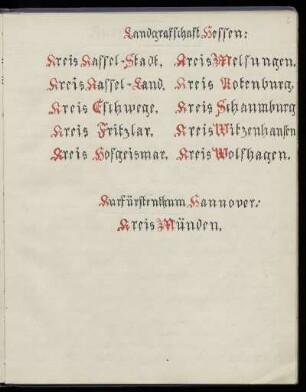 Landgrafschaft Hessen:
Kreis Kassel-Stadt. Kreis Melsungen.
Kreis Kassel-Land. Kreis Rotenburg.
Kreis Eschwege. Kreis Schaumburg
Kreis Fritzlar. Kreis Witzenhausen
Kreis Hofgeismar. Kreis Wolfhagen.
Kurfürstenthum Hannover:
Kreis Münden.